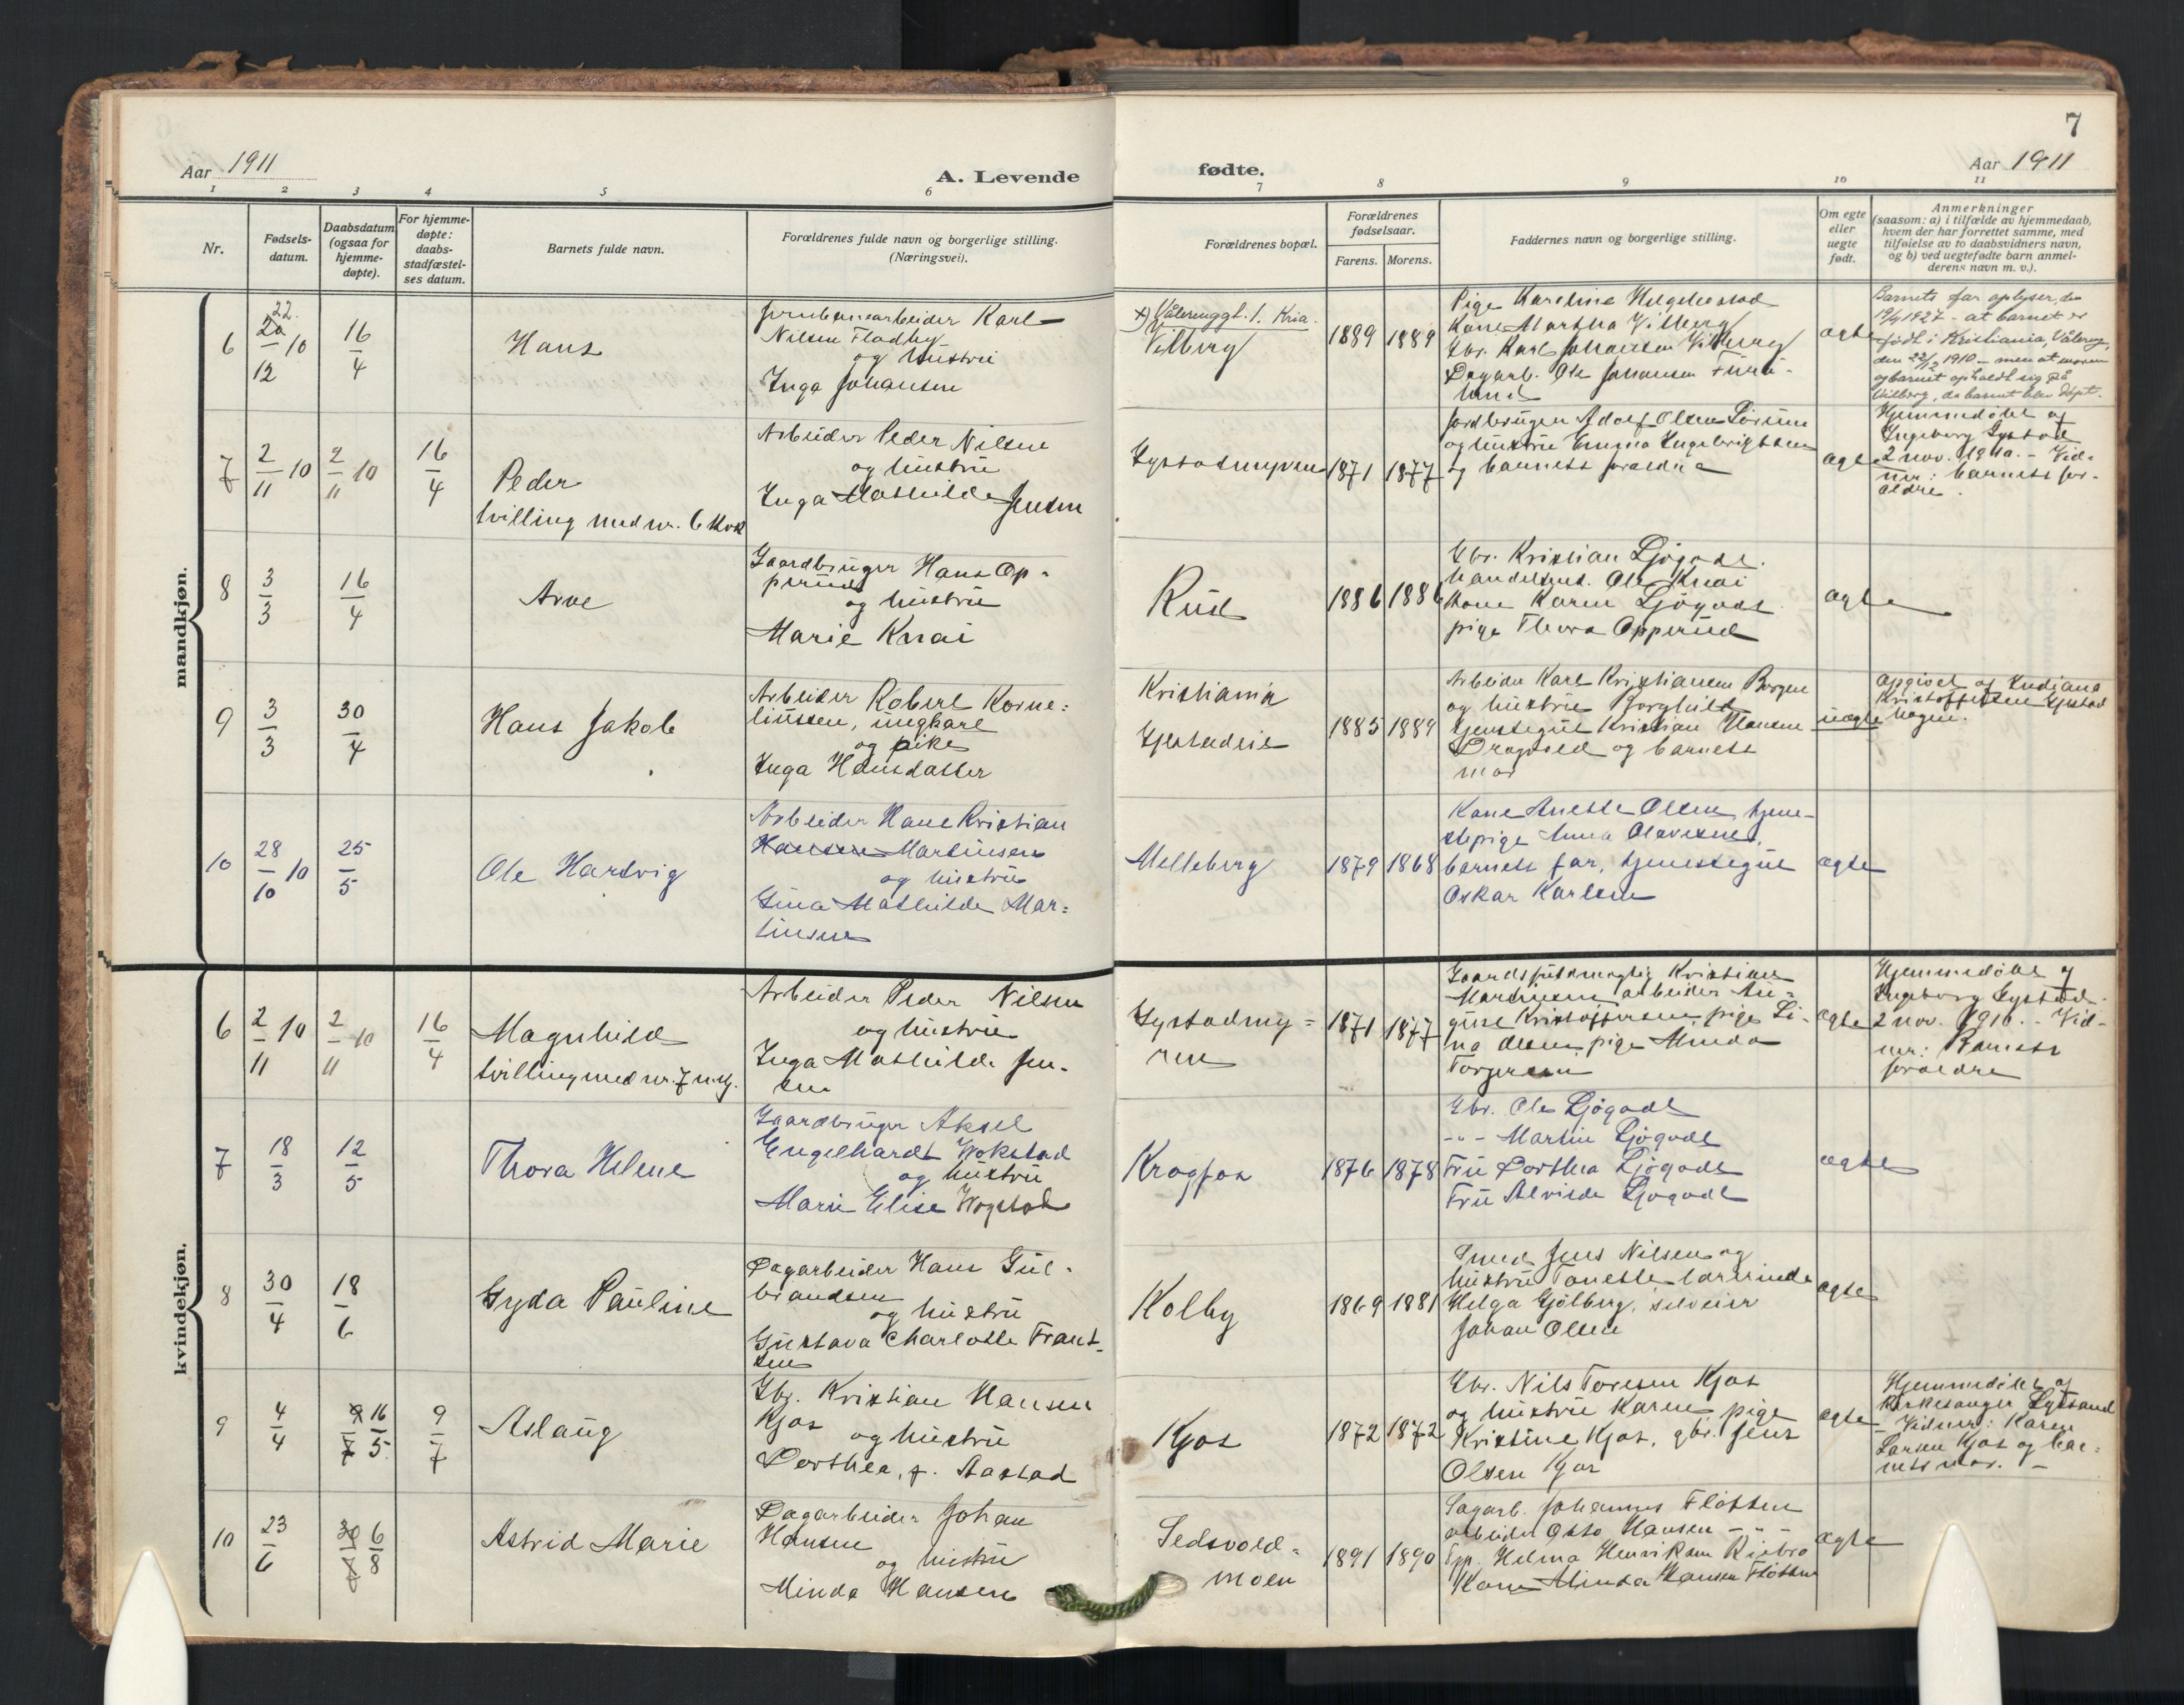 7
Aar 1911
A. Levende
fødte.
Aar 1911
1 2 3 4 5 6 7 8 9 10 11
Nr.
Fødsels-
datum.
Daabsdatum
(ogsaa for
hjemme-
døpte).
For hjemme-
døpte:
daabs-
stadfæstel-
ses datum.
Barnets fulde navn.
Forældrenes fulde navn og borgerlige stilling.
(Næringsvei).
Forældrenes bopæl.
Forældrenes
fødselsaar.
Farens. Morens.
Faddernes navn og borgerlige stilling.
Om egte
eller
uegte
født.
Anmerkninger
(saasom: a) i tilfælde av hjemmedaab,
hvem der har forrettet samme, med
tilføielse av to daabsvidners navn,
og b) ved uegtefødte barn anmel-
derens navn m. v.).
mandkjøn.
6
22.
20/12 10
16/4
Hans
Jernbanearbeider Karl
Nilsen Fladby
og hustru
Inga Johansen
x) Vålerenggt. 1. Kria.
Vilberg
1889 1889
Pige Karoline Helgebostad
Kone Martha Vilberg
Gbr. Karl Johansen Vilberg
Dagarb. Ole Johansen Furu-
lund
ægte
Barnets far oplyser, den
19/4 1927 - at barnet er
født i Kristiania, Vålereng,
den 22/12 1910 - men at moren
og barnet opholdt sig på
Vilberg, da barnet blev døpt.
7
2/11 10
2/11 10
16/4
Peder
tvilling med nr. 6 kvk
Arbeider Peder Nilsen
og hustru
Inga Mathilde Jensen
Gystadmyren
1871 1877
Jordbruger Adolf Olsen Sörum
og hustru Emma Ingebrigtsen
og barnets forældre
ægte
Hjemmedöbt af
Ingeborg Gystad
2 nov. 1910. - Vid-
ner: barnets for-
ældre.
8
3/3
16/4
Arve
Gaardbruger Hans Op-
perud
og hustru
Marie Knai
Rud
1886 1886
Gbr. Kristian Ljögodt.
handelsmd. Ole Knai
kone Karen Ljögodt
pige Thora Opperud
ægte
9
3/3
30/4
Hans Jakob
Arbeider Robert Korne-
liussen, ungkare
og pike
Inga Hansdatter
Kristiania
1885 1889
Arbeider Karl Kristiansen Borgen
og hustru Borghild
tjenstegut Kristian Hansen
Dragvold og barnets
mor
uægte
Opgivet af Indiana
Kristoffersen Gystad
hagen.
10
28/10 10
25/5
Ole Hartvig
Arbeider Hans Kristian
Hansen Martinsen
og hustru
Gina Mathilde Mar-
tinsen
Melleberg
1879 1868
Kone Anette Olsen, tjene-
stepige Anna Olavesen,
barnets far, tjenestegut
Oskar Karlsen
ægte
kvindekjøn.
6
2/11 10
2/11 10
16/4
Magnhild
tvilling med nr. 7 m.kj.
Arbeider Peder Nilsen
og hustru
Inga Mathilde Jen-
sen
Gystadmy-
ren
1871 1877
Gaardsfuldmægtig Kristian
Martinsen, arbeider Au-
gust Kristoffersen, pige Li-
na Olsen, pige Minda
Torgersen
ægte
Hjemmedöbt af
Ingeborg Gystad
2 nov. 1910. - Vid-
ner: Barnets
forældre
7
18/3
12/5
Thora Helene
Gaardbruger Aksel
Engelhardt Wokstad
og hustru
Marie Elise Wogstad
Krogfos
1876 1878
Gbr. Ole Ljögodt
-"- Martin Ljögodt
Fru Dorthea Ljögodt
Fru Alvilde Ljøgodt
ægte
8
30/4
18/6
Gyda Pauline
Dagarbeider Hans Gul-
brandsen
og hustru
Gustava Charlotte Frant-
sen
Kolby
1869 1881
Smed Jens Nilsen og
hustru Tonette, lærerinde
Helga Gjölberg, selveier
Johan Olsen
ægte
9
4/4
9/7 16/5
9/7
Aslaug
Gbr. Kristian Hansen
Kjos
og hustru
Dorthea, f. Aastad
Kjos
1872 1872
Gbr. Nils Toresen Kjos
og hustru Karen, pige
Kristine Kjos, gbr. Jens
Olsen Kjos
ægte
Hjemmedöbt af
Kirkesanger Lysand
- Vidner: Karen
Larsen Kjos og bar-
nets mor. -
10
23/6
30/7 6/8
Astrid Marie
Dagarbeider Johan
Hansen
og hustru
Minda Hansen
Sedsvold-
moen
1891 1890
Dagarb. Johannes Fløtten
arbeider Otto Hansen - " -
Tjp. Helma Henriksen
Kone Minda Hansen Fløtten
ægte